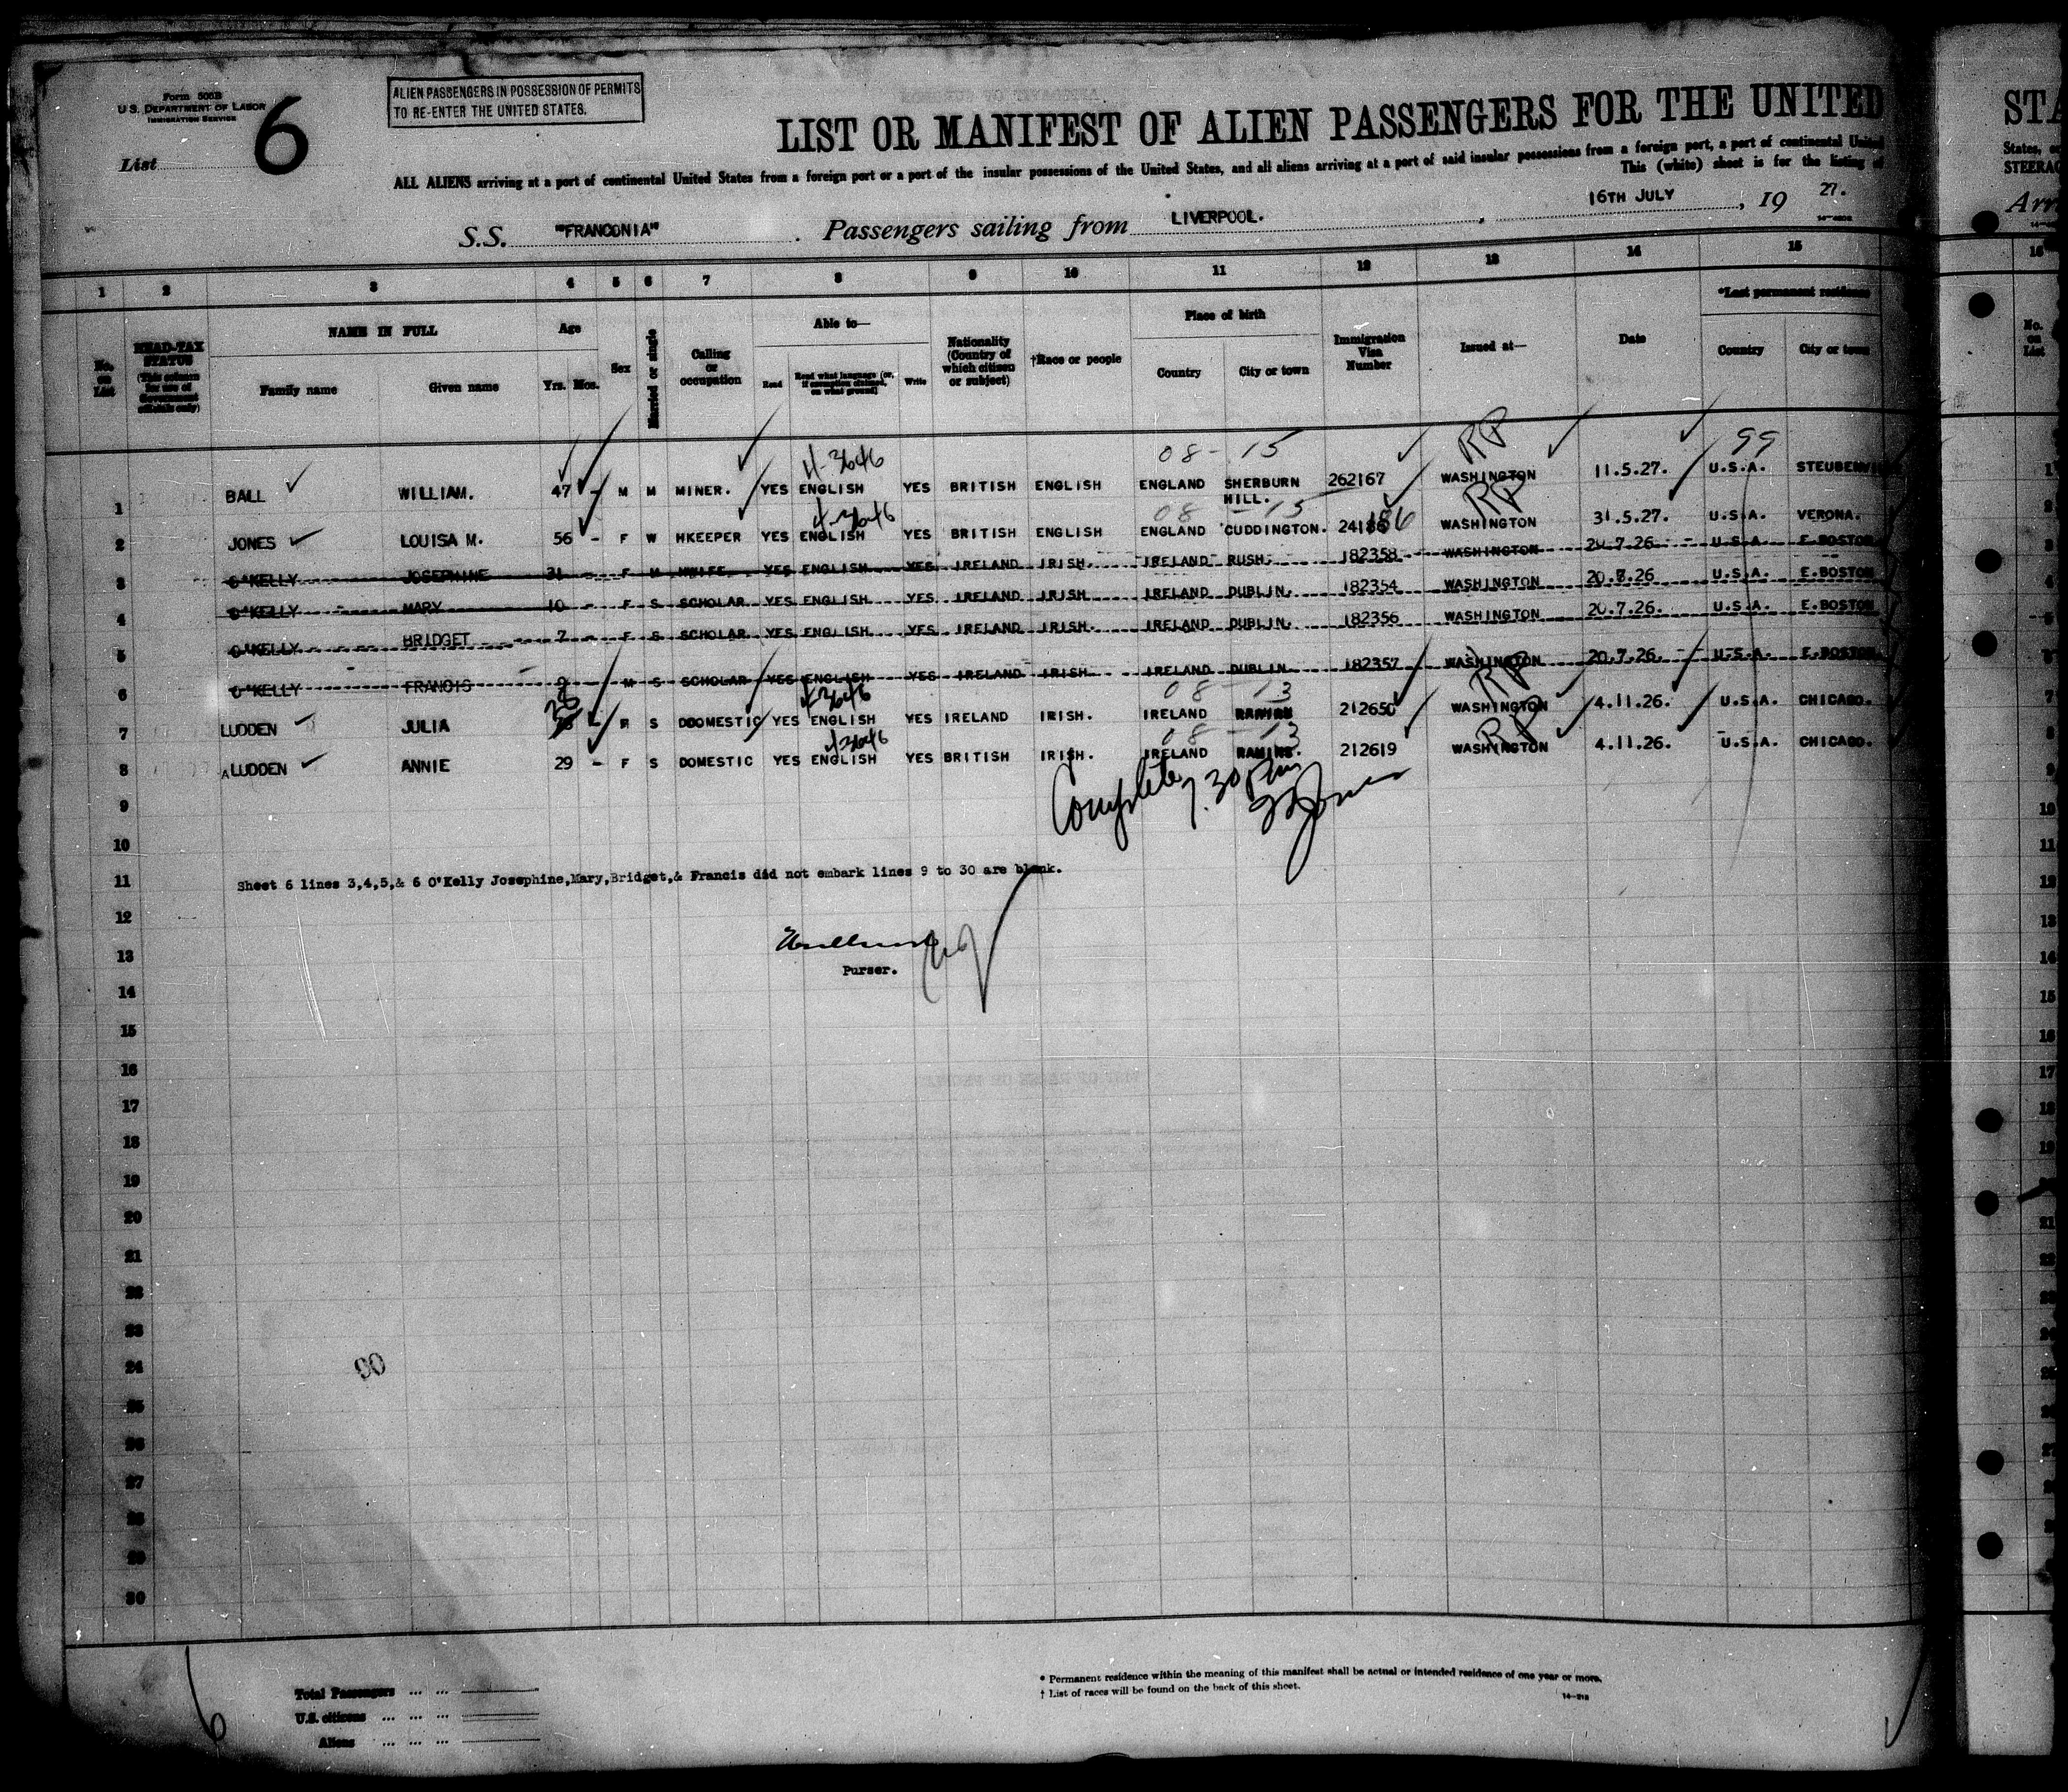 Form 500B
U.S. DEPARTMENT OF LABOR
IMMIGRATION SERVICE
List 6
ALIEN PASSENGERS IN POSSESSION OF PERMITS
TO RE-ENTER THE UNITED STATES.
LIST OR MANIFEST OF ALIEN PASSENGERS FOR THE UNITED
STA
ALL ALIENS arriving at a port of continental United States from a foreign port or a port of the insular possessions of the United States, and all aliens arriving at a port of said insular possessions from a foreign port, a port of continental United
States, or
This (white) sheet is for the listing of
STEERAG
S.S. "FRANCONIA" . Passengers sailing from LIVERPOOL. , 16TH JULY , 19 27.
Arri
1 2 3 4 5 6 7 8 9 10 11 12 13 14 15
16
No. on List
HEAD-TAX STATUS (This column for use of Government officials only)
NAME IN FULL
Family name Given name
Age
Yrs. Mos.
Sex
Married or single
Calling or occupation
Able to—
Read Read what language (or, if exemption claimed, on what ground) Write
Nationality (Country of which citizen or subject)
†Race or people
Place of birth
Country City or town
Immigration Visa Number
Issued at—
Date
*Last permanent residence
Country City or town
No. on List
4-3646 08-15 RP 99
1 BALL WILLIAM. 47 - M M MINER. YES ENGLISH YES BRITISH ENGLISH ENGLAND SHERBURN HILL. 262167 WASHINGTON 11.5.27. U.S.A. STEUBENV
4-3646 08-15 RP
2 JONES LOUISA M. 56 - F W HKEEPER YES ENGLISH YES BRITISH ENGLISH ENGLAND CUDDINGTON. 24186 WASHINGTON 31.5.27. U.S.A. VERONA.
3 O'KELLY JOSEPHINE 31 - F M HWIFE YES ENGLISH YES IRELAND IRISH. IRELAND RUSH. 182358 WASHINGTON 20.7.26 U.S.A. E.BOSTON
4 O'KELLY MARY 10 - F S SCHOLAR YES ENGLISH YES IRELAND IRISH IRELAND DUBLIN. 182354 WASHINGTON 20.7.26 U.S.A. E.BOSTON
5 O'KELLY BRIDGET 7 - F S SCHOLAR YES ENGLISH YES IRELAND IRISH. IRELAND DUBLIN. 182356 WASHINGTON 20.7.26. U.S.A. E.BOSTON
6 O'KELLY FRANCIS 9 - M S SCHOLAR YES ENGLISH YES IRELAND IRISH. IRELAND DUBLIN 182357 WASHINGTON 20.7.26. U.S.A. E.BOSTON.
4-3646 08-13 RP
7 LUDDEN JULIA - F S DDOMESTIC YES ENGLISH YES IRELAND IRISH. IRELAND 212650 WASHINGTON 4.11.26. U.S.A. CHICAGO.
4-3646 08-13 RP
8 LUDDEN ANNIE 29 - F S DOMESTIC YES ENGLISH YES BRITISH IRISH. IRELAND 212619 WASHINGTON 4.11.26. U.S.A. CHICAGO.
Complete 7.30 Pm
9
10
11 Sheet 6 lines 3,4,5,& 6 O'Kelly Josephine,Mary,Bridget,& Francis did not embark lines 9 to 30 are blank.
12
13
Purser.
14
15
16
17
18
19
20
21
22
23
24
90
25
26
27
28
29
30
6
Total Passengers ... ...
U.S. citizens ... ... ...
Aliens ... ... ...
* Permanent residence within the meaning of this manifest shall be actual or intended residence of one year or more.
† List of races will be found on the back of this sheet.